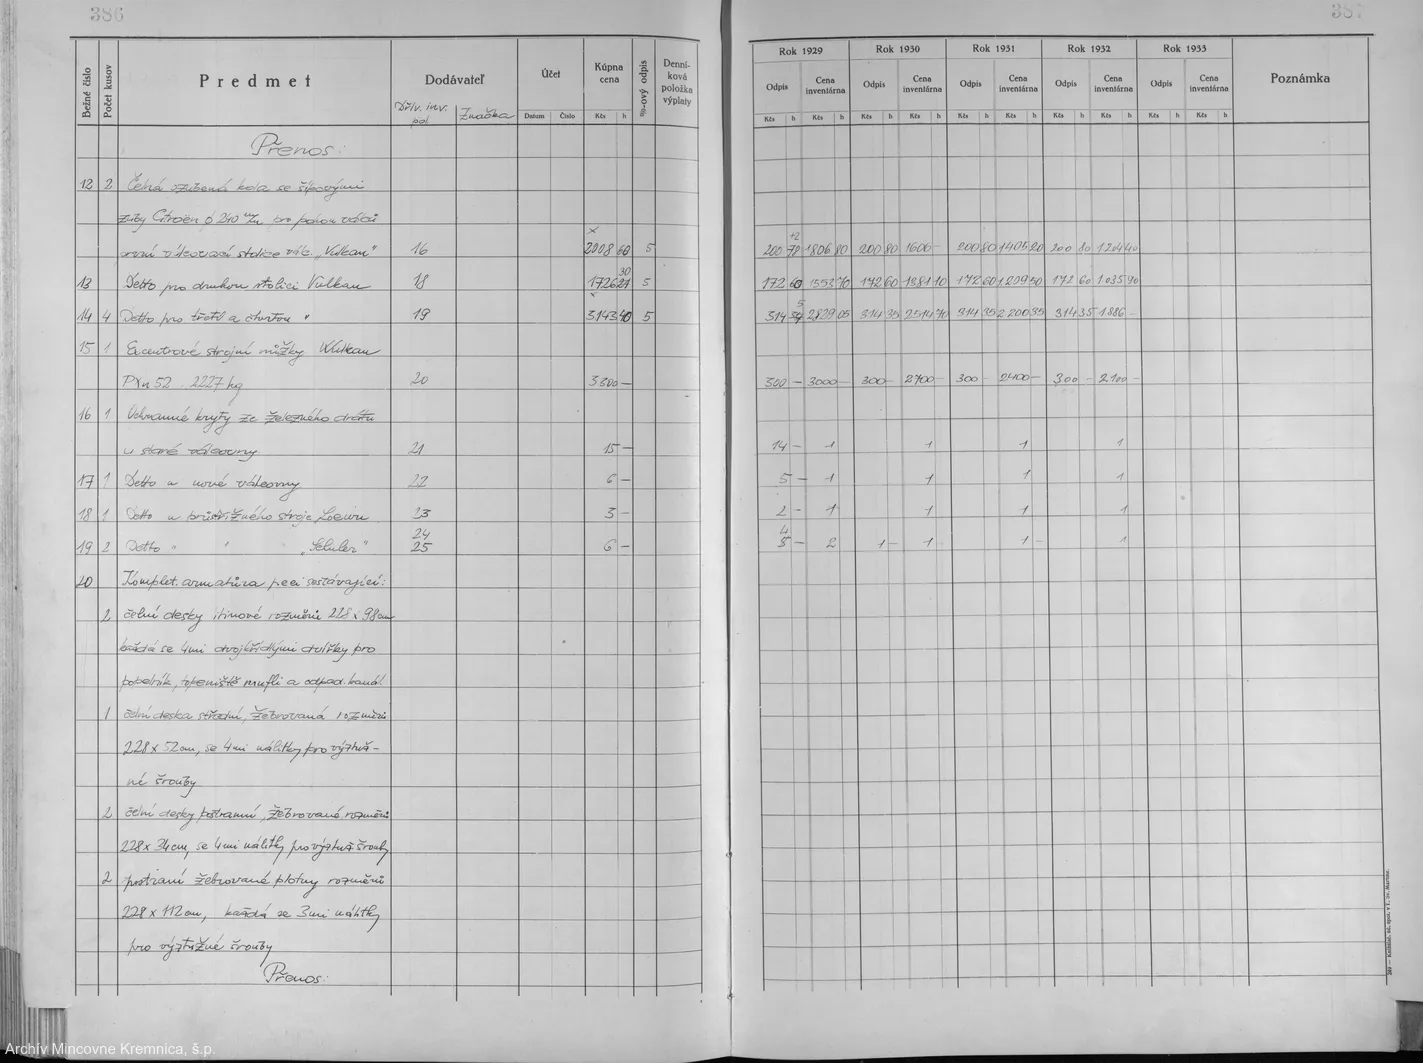 386
387
Bežné číslo
Počet kusov
Predmet
Dodávateľ
Dřív. inv. pol.
Značka
Účet
Datum Číslo
Kúpna cena
Kčs h
%-ový odpis
Denníková položka výplaty
Rok 1929 Rok 1930 Rok 1931 Rok 1932 Rok 1933
Odpis Cena inventárna Odpis Cena inventárna Odpis Cena inventárna Odpis Cena inventárna Odpis Cena inventárna
Kčs h Kčs h Kčs h Kčs h Kčs h Kčs h Kčs h Kčs h Kčs h Kčs h
Poznámka
Přenos:
12 2 Čelná ozubená kola se šípovými
zuby Citroën ó 240 m/m pro pohon válců
první válcovací stolice válc. „Vulkan" 16 2008 60 5 200 1806 80 200 80 1606 - 200 80 1405 20 200 80 1204 40
13 Detto pro druhou stolici Vulkan 18 1726 5 172 60 1553 70 172 60 1381 10 172 60 1209 50 172 60 1035 90
14 4 Detto pro třetí a čtvrtou " 19 3143 40 5 314 2829 05 314 35 2514 70 314 35 2200 35 314 35 1886 -
15 1 Excentrové strojní nůžky Vulkan
PXn 52 2227 kg 20 3300 — 300 — 3000 — 300 — 2700 — 300 — 2400 — 300 — 2100 —
16 1 Ochranné kryty ze železného drátu
u staré válcovny 21 15 — 14 — 1 1 1 1
17 1 Detto u nové válcovny 22 6 — 5 — 1 1 1 1
18 1 Detto u průstřižného stroje Loewu 23 3 — 2 — 1 1 1 1
24
19 2 Detto " " „Schuler" 25 6 — 2 1 — 1 1 — 1
20 Komplet. armatůra peci sestávající:
2 čelní desky litinové rozměrů 228 x 98 cm
každá se 4mi dvojkřídlými dvířky pro
popelník, topeniště mufli a odpad. kanál.
1 čelní deska střední, žebrovaná rozměrů
228 x 52 cm, se 4mi nálitky pro výztuž-
né šrouby
2 čelní desky postranní, žebrované rozměrů
228 x 34 cm, se 4mi nálitky pro výztuž. šrouby
2 postraní žebrované plotny rozměrů
228 x 112 cm, každá se 3mi nálitky
pro výztužné šrouby
Přenos:
Archív Mincovne Kremnica, š.p.